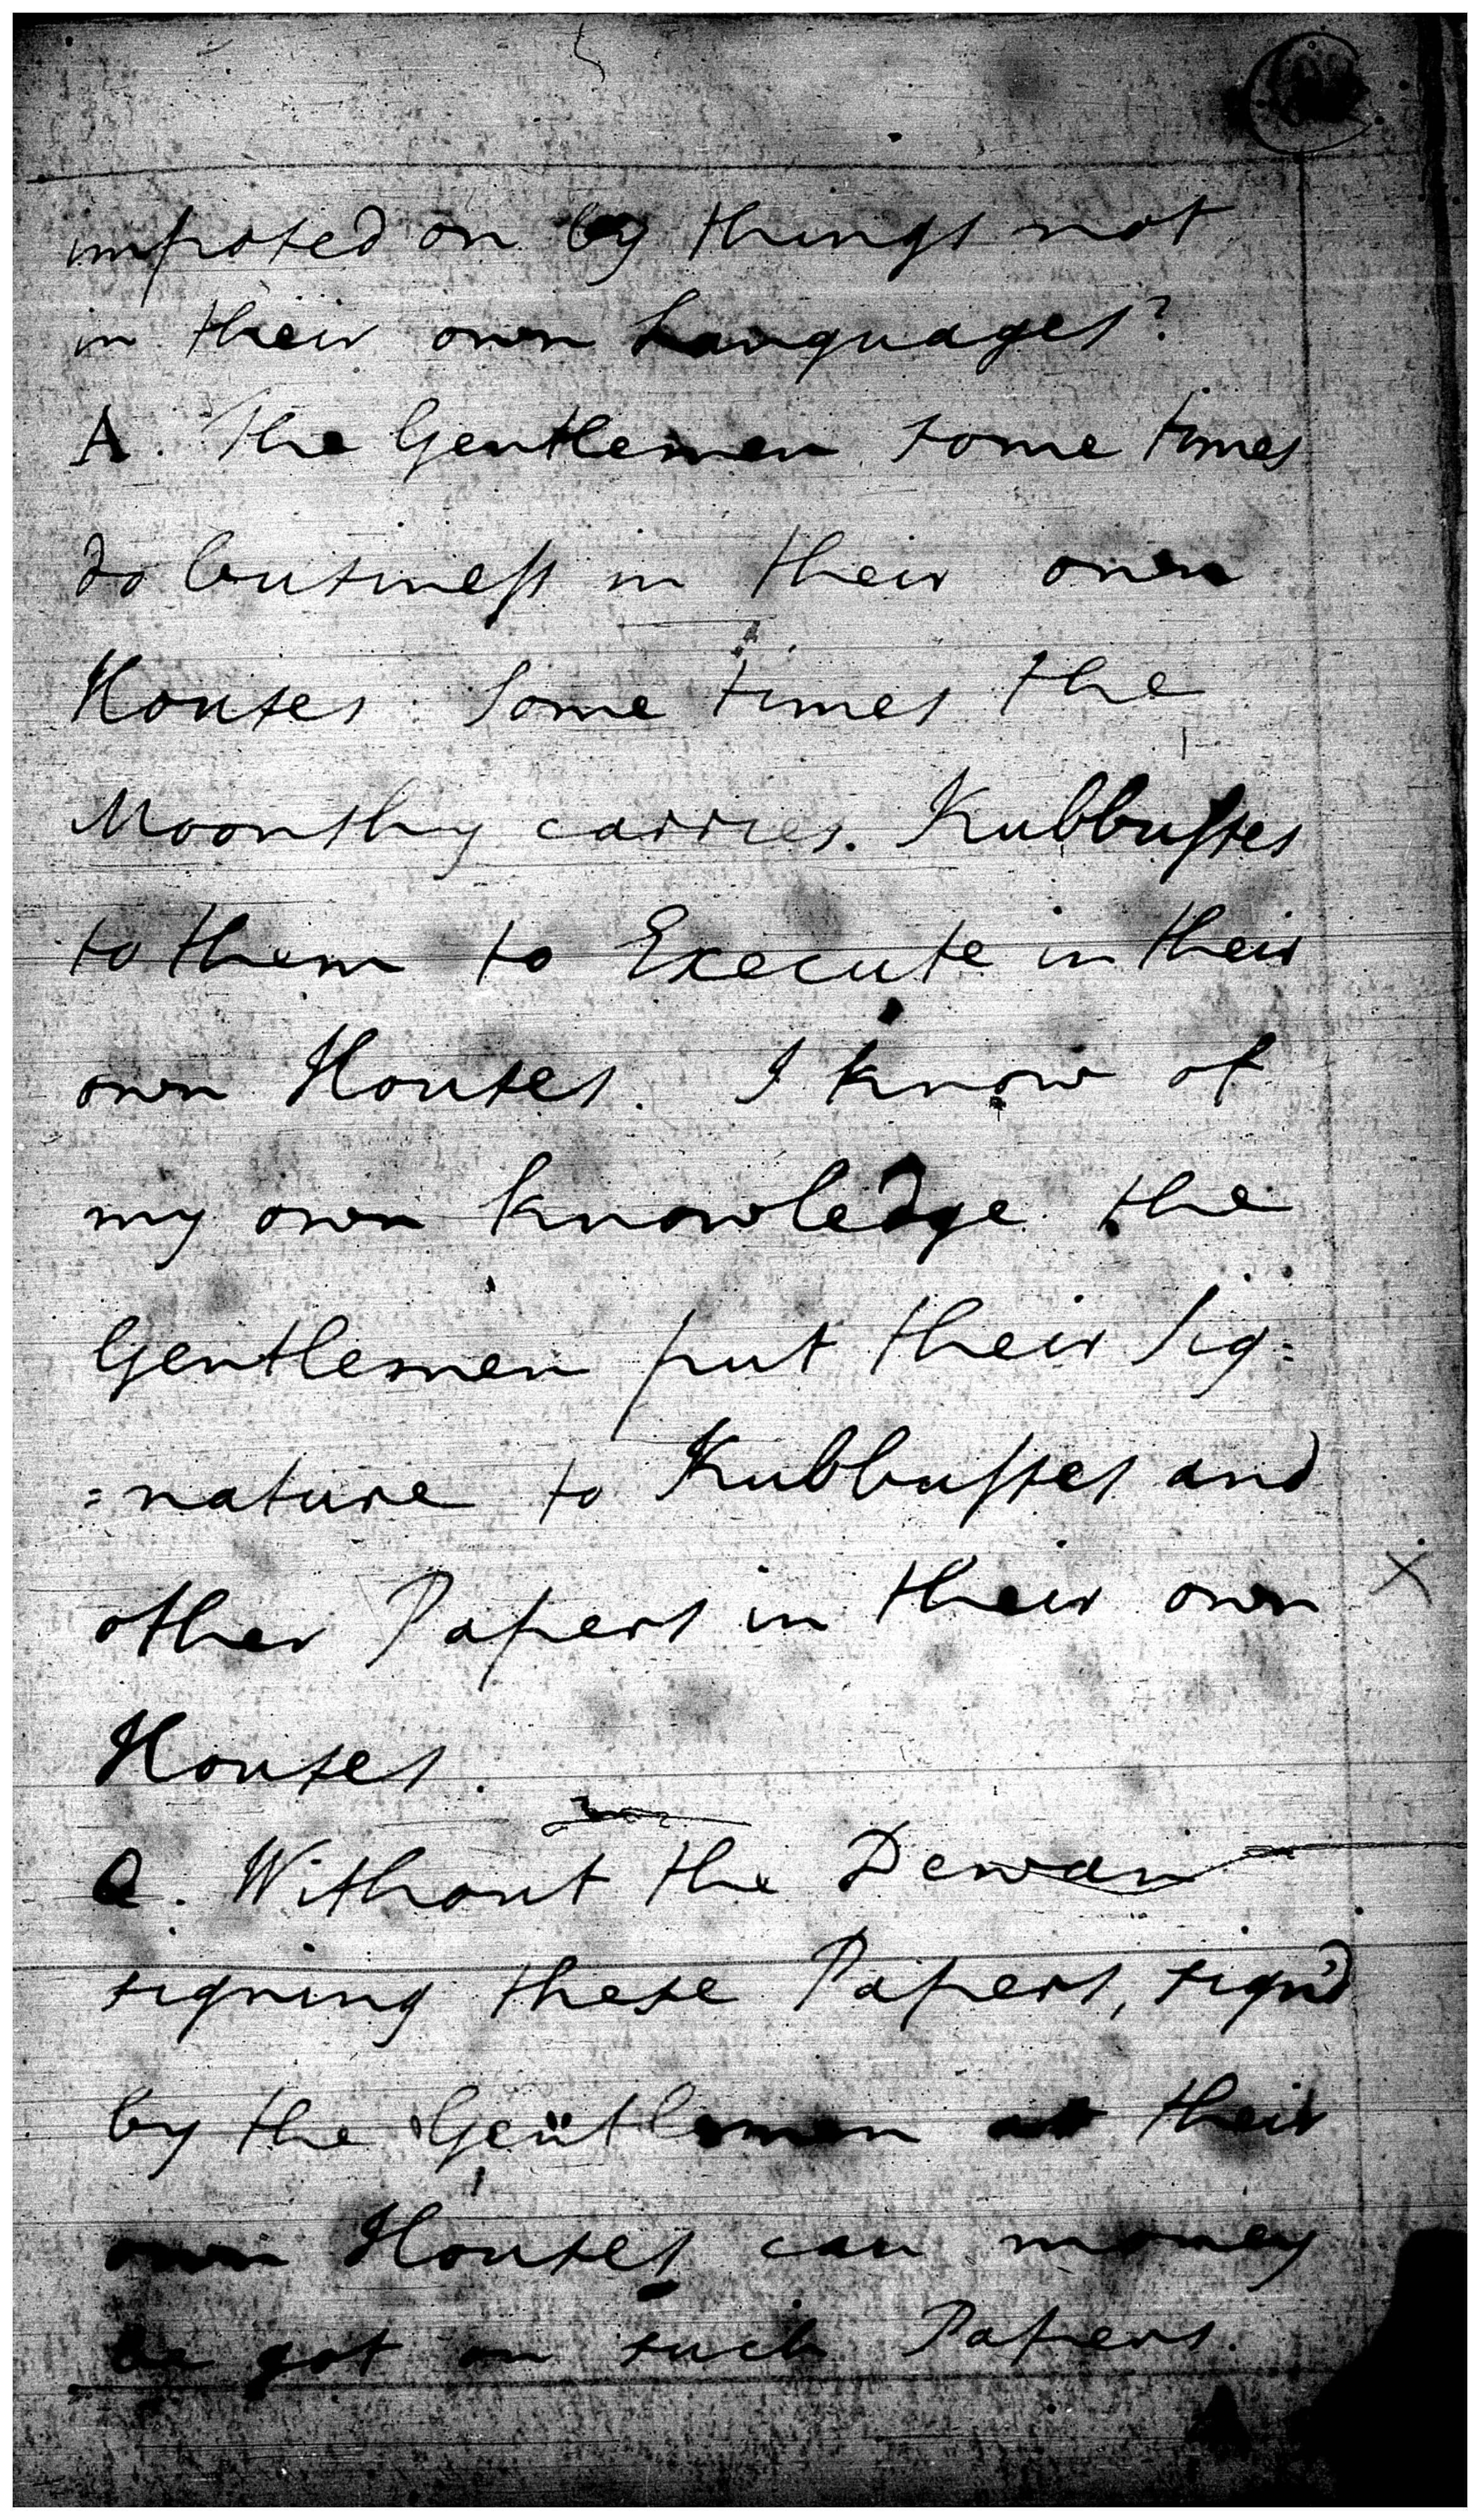 imposed on by things not
in their own Languages?
A. The Gentlemen some times
do business in their own
Houses. Some times the
Moonshy carries. Kubbusses
to them to Execute in their
own Houses. I know of
my own knowledge the
Gentlemen put their Sig=
=nature to Kubbusses and
other Papers in their own
Houses.
Q. Without the Dewan
signing these Papers, sign'd
by the Gentlemen at their
own Houses can money
be got on such Papers.